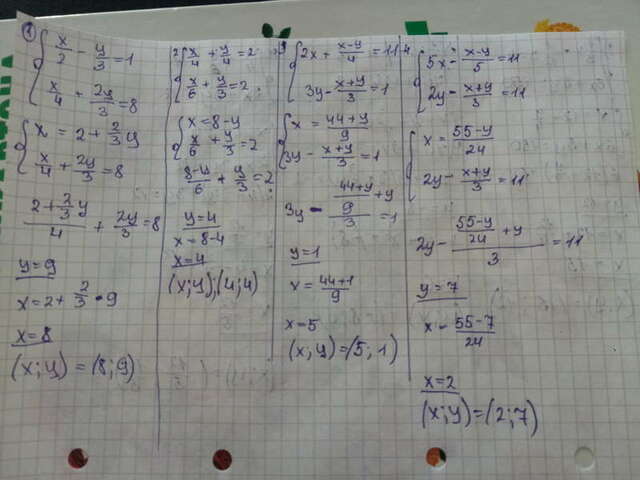 1
x/2 - y/3 = 1
x/4 + 2y/3 = 8
x = 2 + 2/3 y
x/4 + 2y/3 = 8
(2 + 2/3 y)/4 + 2y/3 = 8
y = 9
x = 2 + 2/3 • 9
x = 8
(x; y) = (8; 9)
2 x/4 + y/4 = 2
x/6 + y/3 = 2
x = 8 - y
x/6 + y/3 = 2
(8-y)/6 + y/3 = 2
y = 4
x = 8 - 4
x = 4
(x; y); (4; 4)
2x + (x-y)/4 = 11
3y - (x+y)/3 = 1
x = (44+y)/9
3y - (x+y)/3 = 1
3y - ((44+y)/9 + y)/3 = 1
y = 1
x = (44+1)/9
x = 5
(x, y) = (5; 1)
4 5x - (x-y)/5 = 11
2y - (x+y)/3 = 11
x = (55-y)/24
2y - (x+y)/3 = 11
2y - ((55-y)/24 + y)/3 = 11
y = 7
x - (55-7)/24
x = 2
(x; y) = (2; 7)